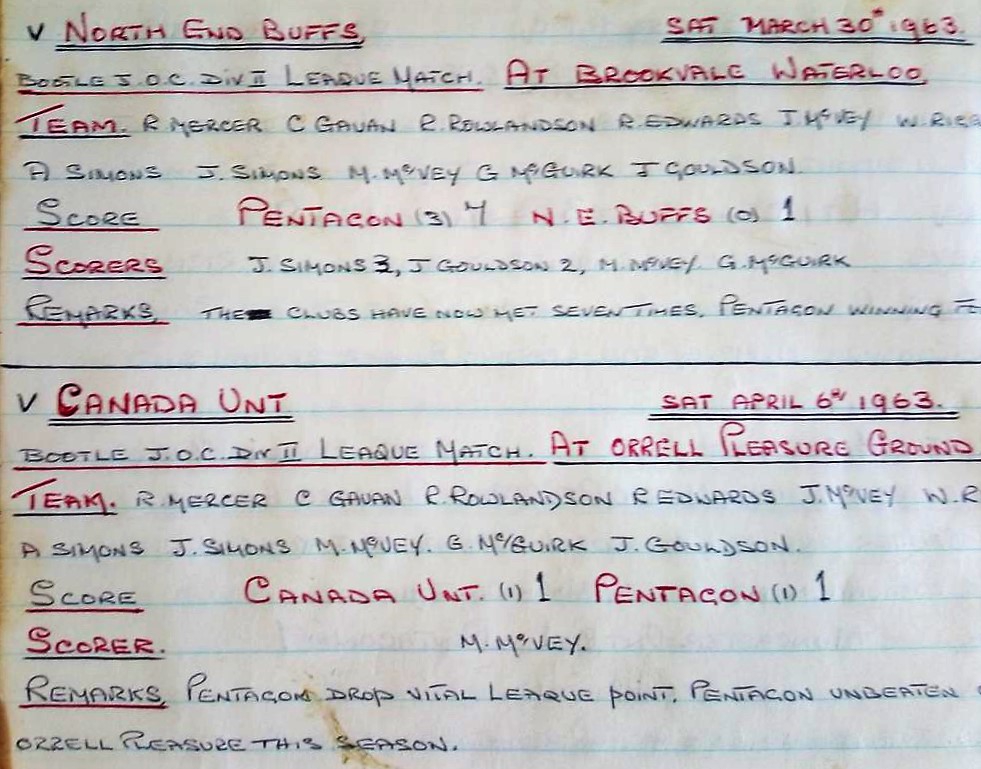 V NORTH END BUFFS, SAT MARCH 30th 1963.
BOOTLE J.O.C. DIV II LEAGUE MATCH. AT BROOKVALE WATERLOO,
TEAM. R MERCER C GAVAN R. ROWLANDSON R. EDWARDS J. McVEY W.
A SIMONS J. SIMONS M. McVEY G McGURK J GOULDSON.
SCORE PENTAGON (3) 7 N. E. BUFFS (0) 1
SCORERS J. SIMONS 3, J GOULDSON 2, M. McVEY. G. McGUIRK
REMARKS, THE CLUBS HAVE NOW MET SEVEN TIMES, PENTAGON WINNING
V CANADA UNT SAT APRIL 6th 1963.
BOOTLE J.O.C. DIV II LEAGUE MATCH. AT ORRELL PLEASURE GROUND
TEAM. R. MERCER C GAVAN R. ROWLANDSON R EDWARDS J. McVEY W. R
A SIMONS J. SIMONS M. McVEY. G. McGUIRK J. GOULDSON.
SCORE CANADA UNT. (1) 1 PENTAGON (1) 1
SCORER. M. McVEY.
REMARKS, PENTAGON DROP VITAL LEAGUE POINT, PENTAGON UNBEATEN
ORRELL PLEASURE THIS SEASON.